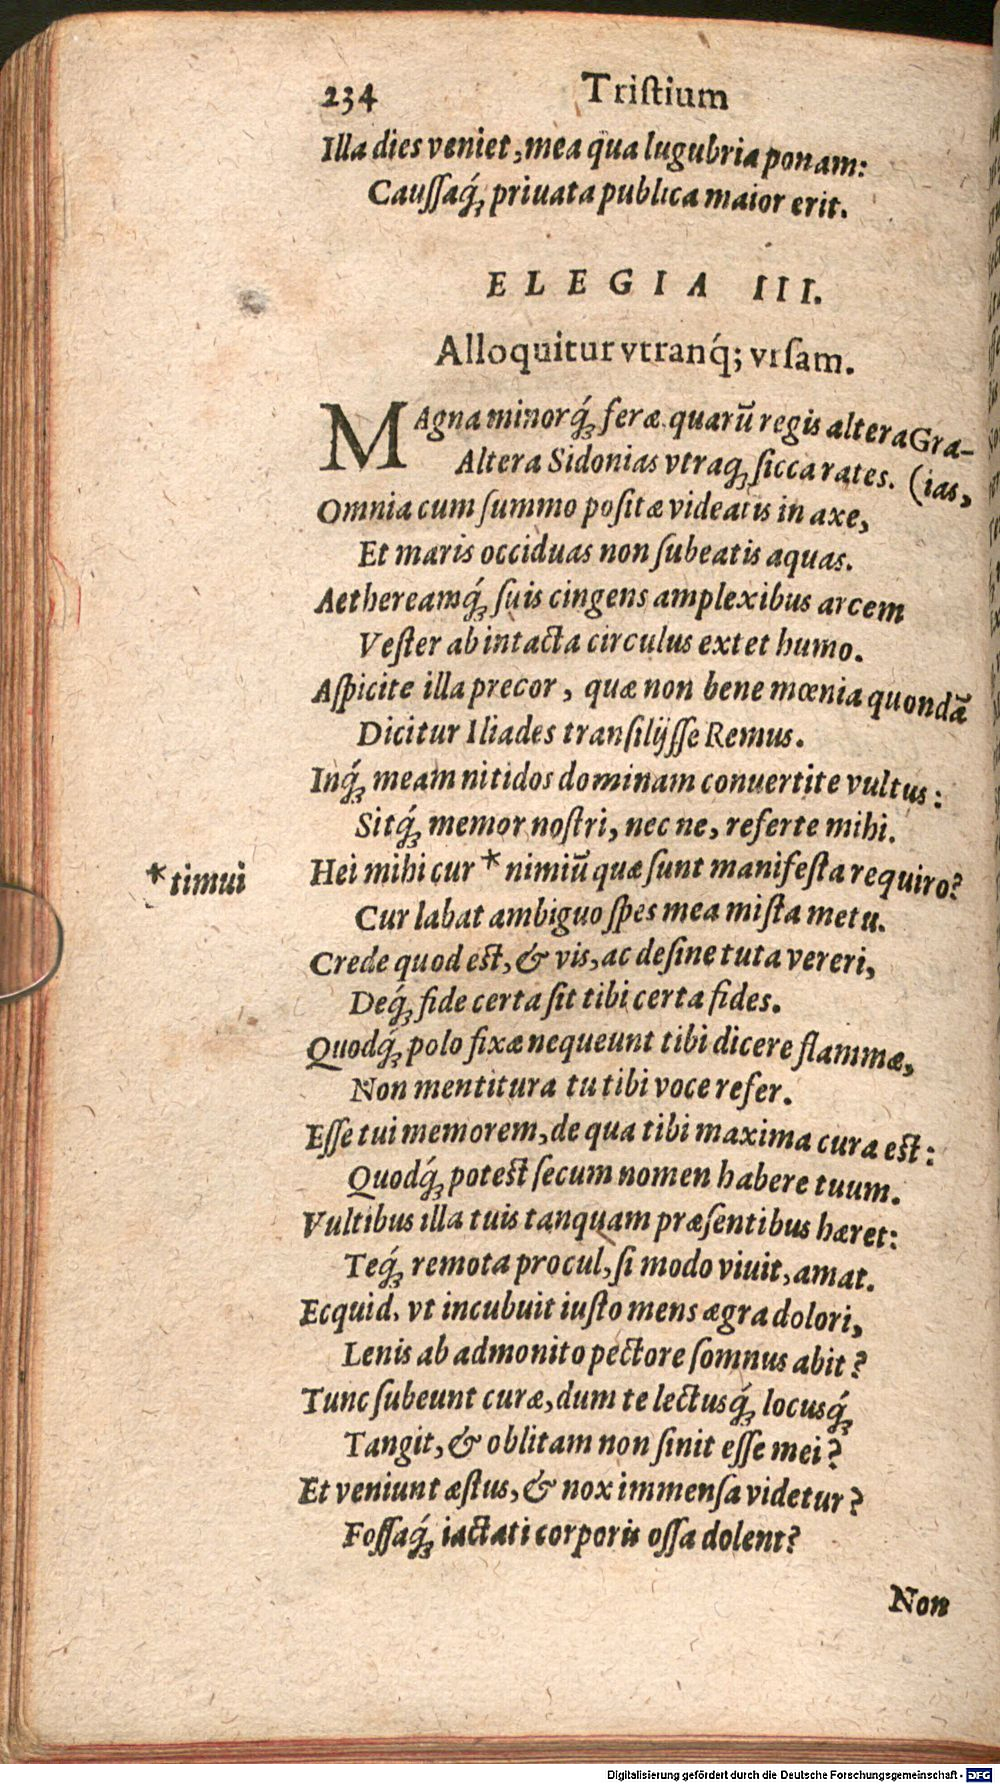 234 Triſtium
Illa dies veniet, mea qua lugubria ponam:
Cauſſaq́; priuata publica maior erit.
ELEGIA III.
Alloquitur vtranq́; vrſam.
MAgna minorq́; feræ quarũ regis altera Gra-
Altera Sidonias vtraq; ſicca rates. (ias,
Omnia cum ſummo poſitæ videatis in axe,
Et maris occiduas non ſubeatis aquas.
Aethereamq́; ſuis cingens amplexibus arcem
Veſter ab intacta circulus extet humo.
Aſpicite illa precor, quæ non bene mœnia quondã
Dicitur Iliades tranſilijſſe Remus.
Inq́; meam nitidos dominam conuertite vultus:
Sitq́; memor noſtri, nec ne, referte mihi.
Hei mihi cur * nimiũ quæ ſunt manifeſta requiro?
* timui
Cur labat ambiguo ſpes mea miſta metu.
Crede quod eſt, & vis, ac deſine tuta vereri,
Deq́; fide certa ſit tibi certa fides.
Quodq́; polo fixæ nequeunt tibi dicere flammæ,
Non mentitura tu tibi voce refer.
Eſſe tui memorem, de qua tibi maxima cura eſt:
Quodq́; poteſt ſecum nomen habere tuum.
Vultibus illa tuis tanquam præſentibus hæret:
Teq́; remota procul, ſi modo viuit, amat.
Ecquid, vt incubuit iuſto mens ægra dolori,
Lenis ab admonito pectore ſomnus abit?
Tunc ſubeunt curæ, dum te lectusq́; locusq́;
Tangit, & oblitam non ſinit eſſe mei?
Et veniunt æſtus, & nox immenſa videtur?
Foſſaq́; iactati corporis oſſa dolent?
Non
Digitalisierung gefördert durch die Deutsche Forschungsgemeinschaft - DFG